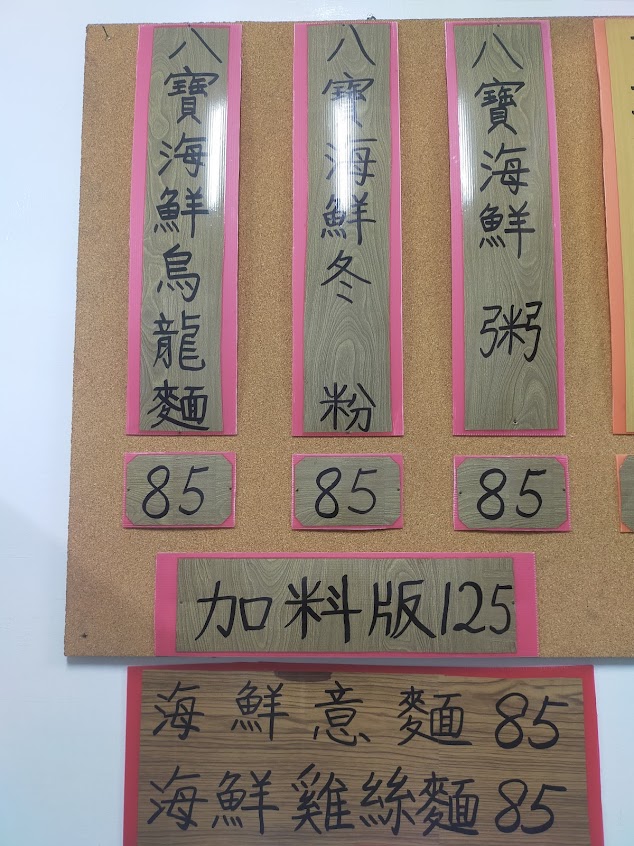 八寶海鮮烏龍麵
85
八寶海鮮冬粉
85
八寶海鮮粥
85
加料版125
海鮮意麵85
海鮮雞絲麵85